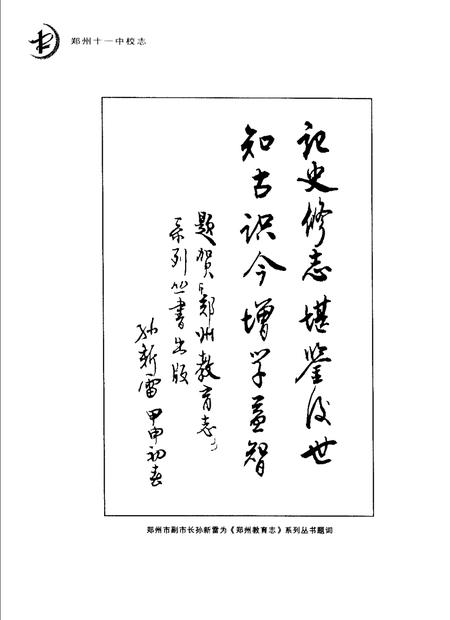 郑州十一中校志
记史修志堪鉴后世
知古识今增学益智
题贺《郑州教育志》
系列丛书出版
孙新雷 甲申初春
郑州市副市长孙新雷为《郑州教育志》系列丛书题词